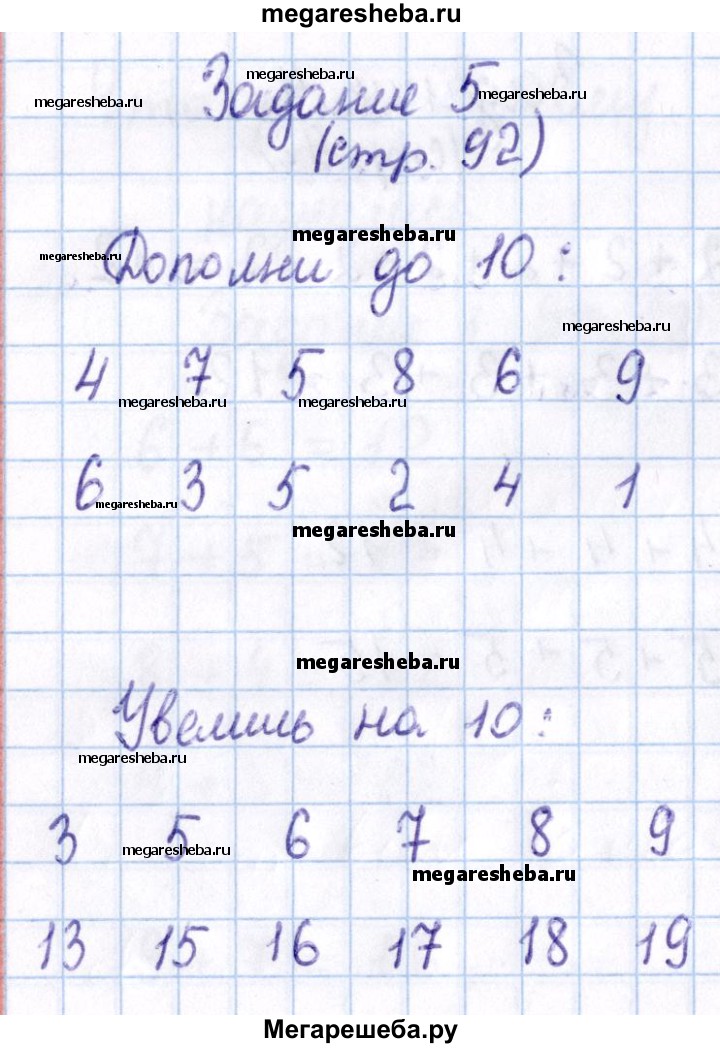 megaresheba.ru
Задание 5
megaresheba.ru
megaresheba.ru
megaresheba.ru
(стр. 92)
Дополни до 10:
megaresheba.ru
megaresheba.ru
megaresheba.ru
4 7 5 8 6 9
megaresheba.ru
megaresheba.ru
6 3 5 2 4 1
megaresheba.ru
megaresheba.ru
megaresheba.ru
Увеличь на 10:
megaresheba.ru
3 5 6 7 8 9
megaresheba.ru
megaresheba.ru
13 15 16 17 18 19
Мегарешеба.ру